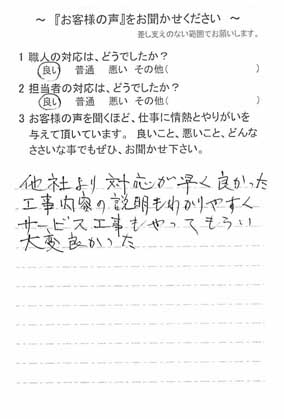 ～ 『お客様の声』をお聞かせください ～
差し支えのない範囲でお願いします。
1 職人の対応は、どうでしたか？
良い 普通 悪い その他( )
2 担当者の対応は、どうでしたか？
良い 普通 悪い その他( )
3 お客様の声を聞くほど、仕事に情熱とやりがいを
与えて頂いています。 良いこと、悪いこと、どんな
ささいな事でもぜひ、お聞かせ下さい。
他社より対応が早く良かった
工事内容の説明もわかりやすく
サービス工事もやってもらい
大変良かった